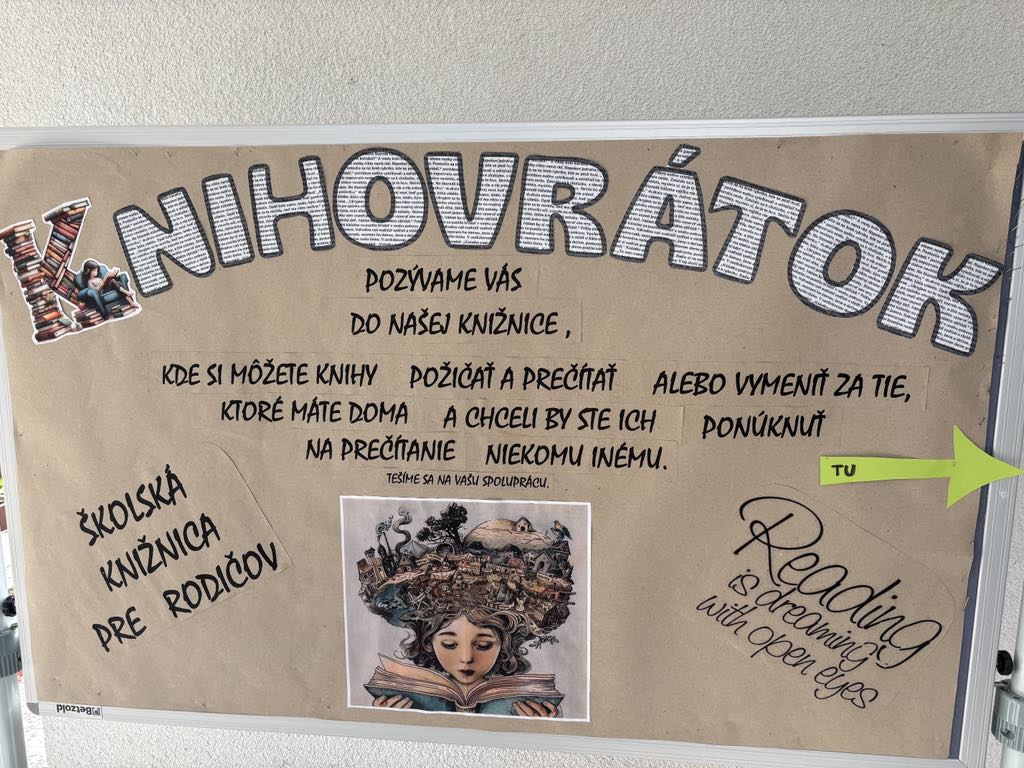 KNIHOVRÁTOK
POZÝVAME VÁS
DO NAŠEJ KNIŽNICE,
KDE SI MÔŽETE KNIHY POŽIČAŤ A PREČÍTAŤ ALEBO VYMENIŤ ZA TIE,
KTORÉ MÁTE DOMA A CHCELI BY STE ICH PONÚKNUŤ
NA PREČÍTANIE NIEKOMU INÉMU.
TEŠÍME SA NA VAŠU SPOLUPRÁCU.
TU
ŠKOLSKÁ
KNIŽNICA
PRE RODIČOV
Reading
is dreaming
with open eyes
Betzold